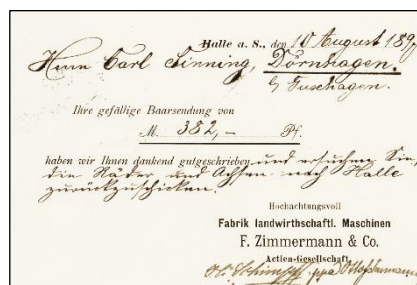 Halle a. S., den 10 August 189
Herrn Carl Sinning, Dörnhagen.
b/ Guxhagen.
Ihre gefällige Baarsendung von
M. 382,— Pf.
haben wir Ihnen dankend gutgeschrieben und ersuchen Sie,
die Räder und Achsen nach Halle
zurückzuschicken.
Hochachtungsvoll
Fabrik landwirthschaftl. Maschinen
F. Zimmermann & Co.
Actien-Gesellschaft.
ppa